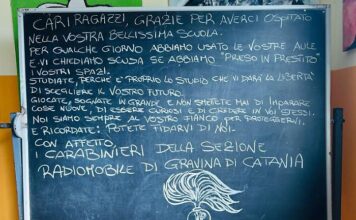 CARI RAGAZZI, GRAZIE PER AVERCI OSPITATO
NELLA VOSTRA BELLISSIMA SCUOLA.
PER QUALCHE GIORNO ABBIAMO USATO LE VOSTRE AULE
E VI CHIEDIAMO SCUSA SE ABBIAMO "PRESO IN PRESTITO"
I VOSTRI SPAZI.
STUDIATE, PERCHÉ E' PROPRIO LO STUDIO CHE VI DARÀ LA LIBERTA'
DI SCEGLIERE IL VOSTRO FUTURO.
GIOCATE, SOGNATE IN GRANDE E NON SMETTETE MAI DI IMPARARE
COSE NUOVE, DI ESSERE CURIOSI E DI CREDERE IN VOI STESSI.
NOI SIAMO SEMPRE AL VOSTRO FIANCO PER PROTEGGERVI.
E RICORDATE: POTETE FIDARVI DI NOI.
CON AFFETTO,
I CARABINIERI DELLA SEZIONE
RADIOMOBILE DI GRAVINA DI CATANIA